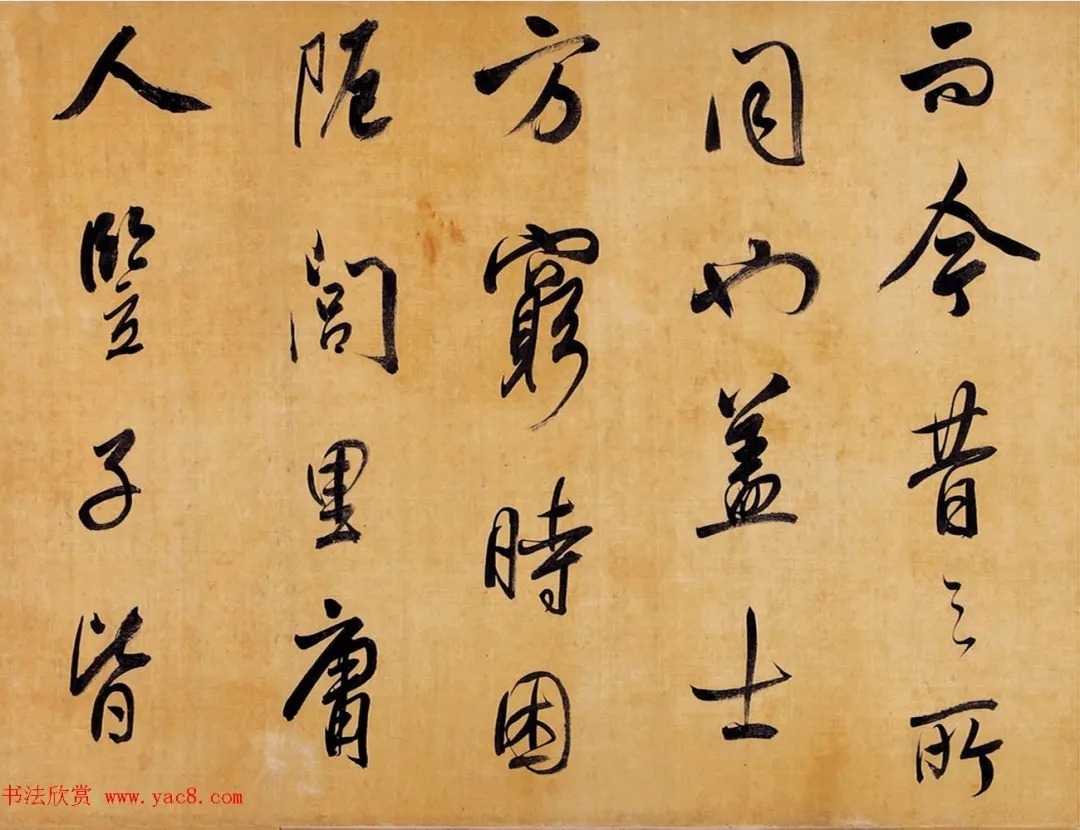 而今昔之所
同也盖士
方窮時困
阨閭里庸
人豎子皆
书法欣赏 www.yac8.com